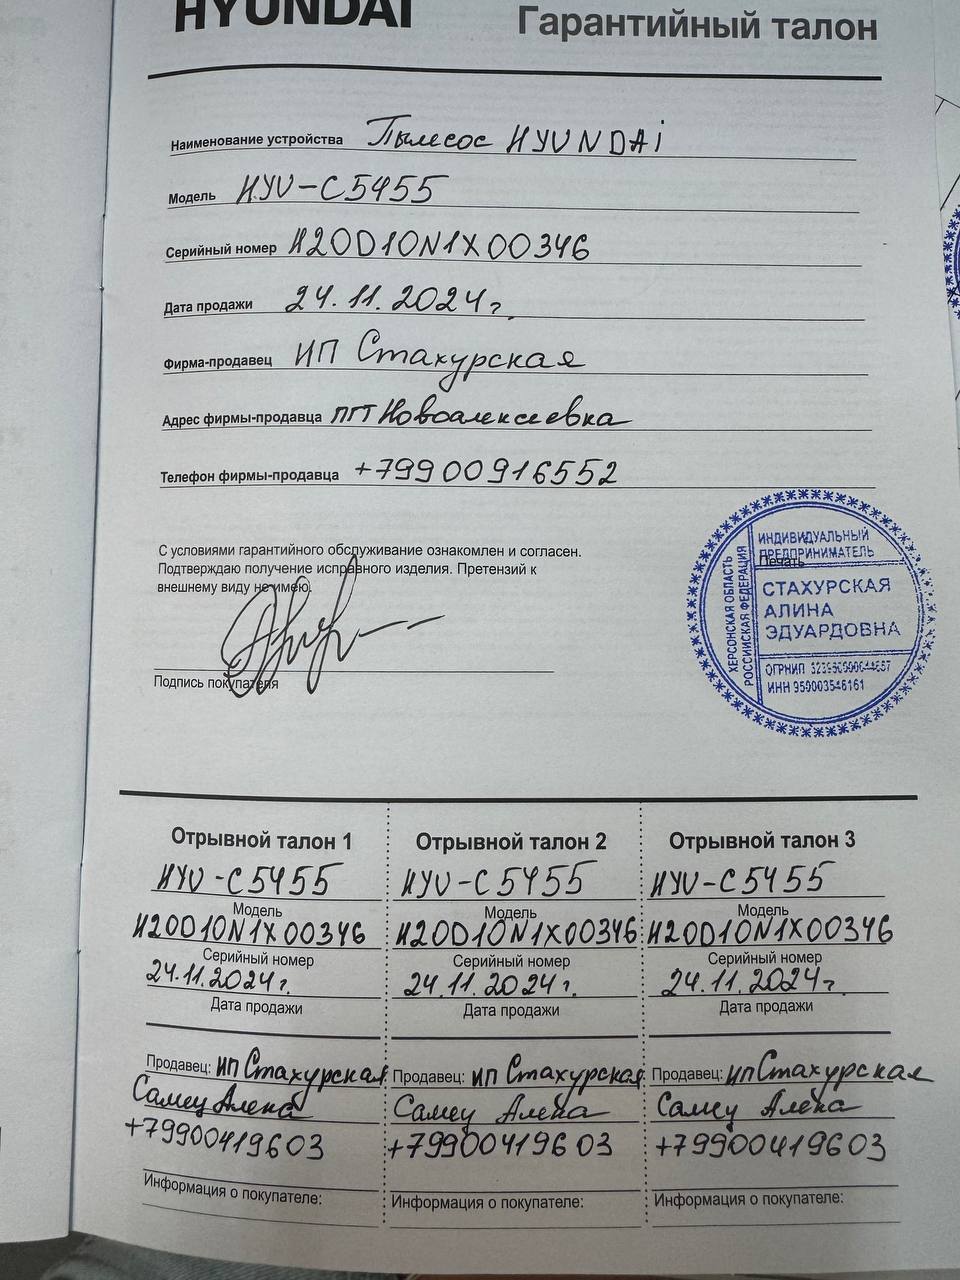 HYUNDAI
Гарантийный талон
Наименование устройства Пылесос HYUNDAi
Модель HYU-C5455
Серийный номер H20D10N1X00346
Дата продажи 24.11.2024г.
Фирма-продавец ИП Стахурская
Адрес фирмы-продавца пгт Новоалексеевка
Телефон фирмы-продавца +79900916552
С условиями гарантийного обслуживание ознакомлен и согласен.
Подтверждаю получение исправного изделия. Претензий к
внешнему виду не имею.
Подпись покупателя
Печать
ХЕРСОНСКАЯ ОБЛАСТЬ
РОССИЙСКАЯ ФЕДЕРАЦИЯ
ИНДИВИДУАЛЬНЫЙ
ПРЕДПРИНИМАТЕЛЬ
СТАХУРСКАЯ
АЛИНА
ЭДУАРДОВНА
ОГРНИП
ИНН 959003546161
Отрывной талон 1
HYU-C5455
Модель
H20D10N1X00346
Серийный номер
24.11.2024г.
Дата продажи
Продавец: ИП Стахурская
Самец Алена
+79900419603
Информация о покупателе:
Отрывной талон 2
HYU-C5455
Модель
H20D10N1X00346
Серийный номер
24.11.2024г.
Дата продажи
Продавец: ИП Стахурская
Самец Алена
+79900419603
Информация о покупателе:
Отрывной талон 3
HYU-C5455
Модель
H20D10N1X00346
Серийный номер
24.11.2024г.
Дата продажи
Продавец: ИП Стахурская
Самец Алена
+79900419603
Информация о покупателе: